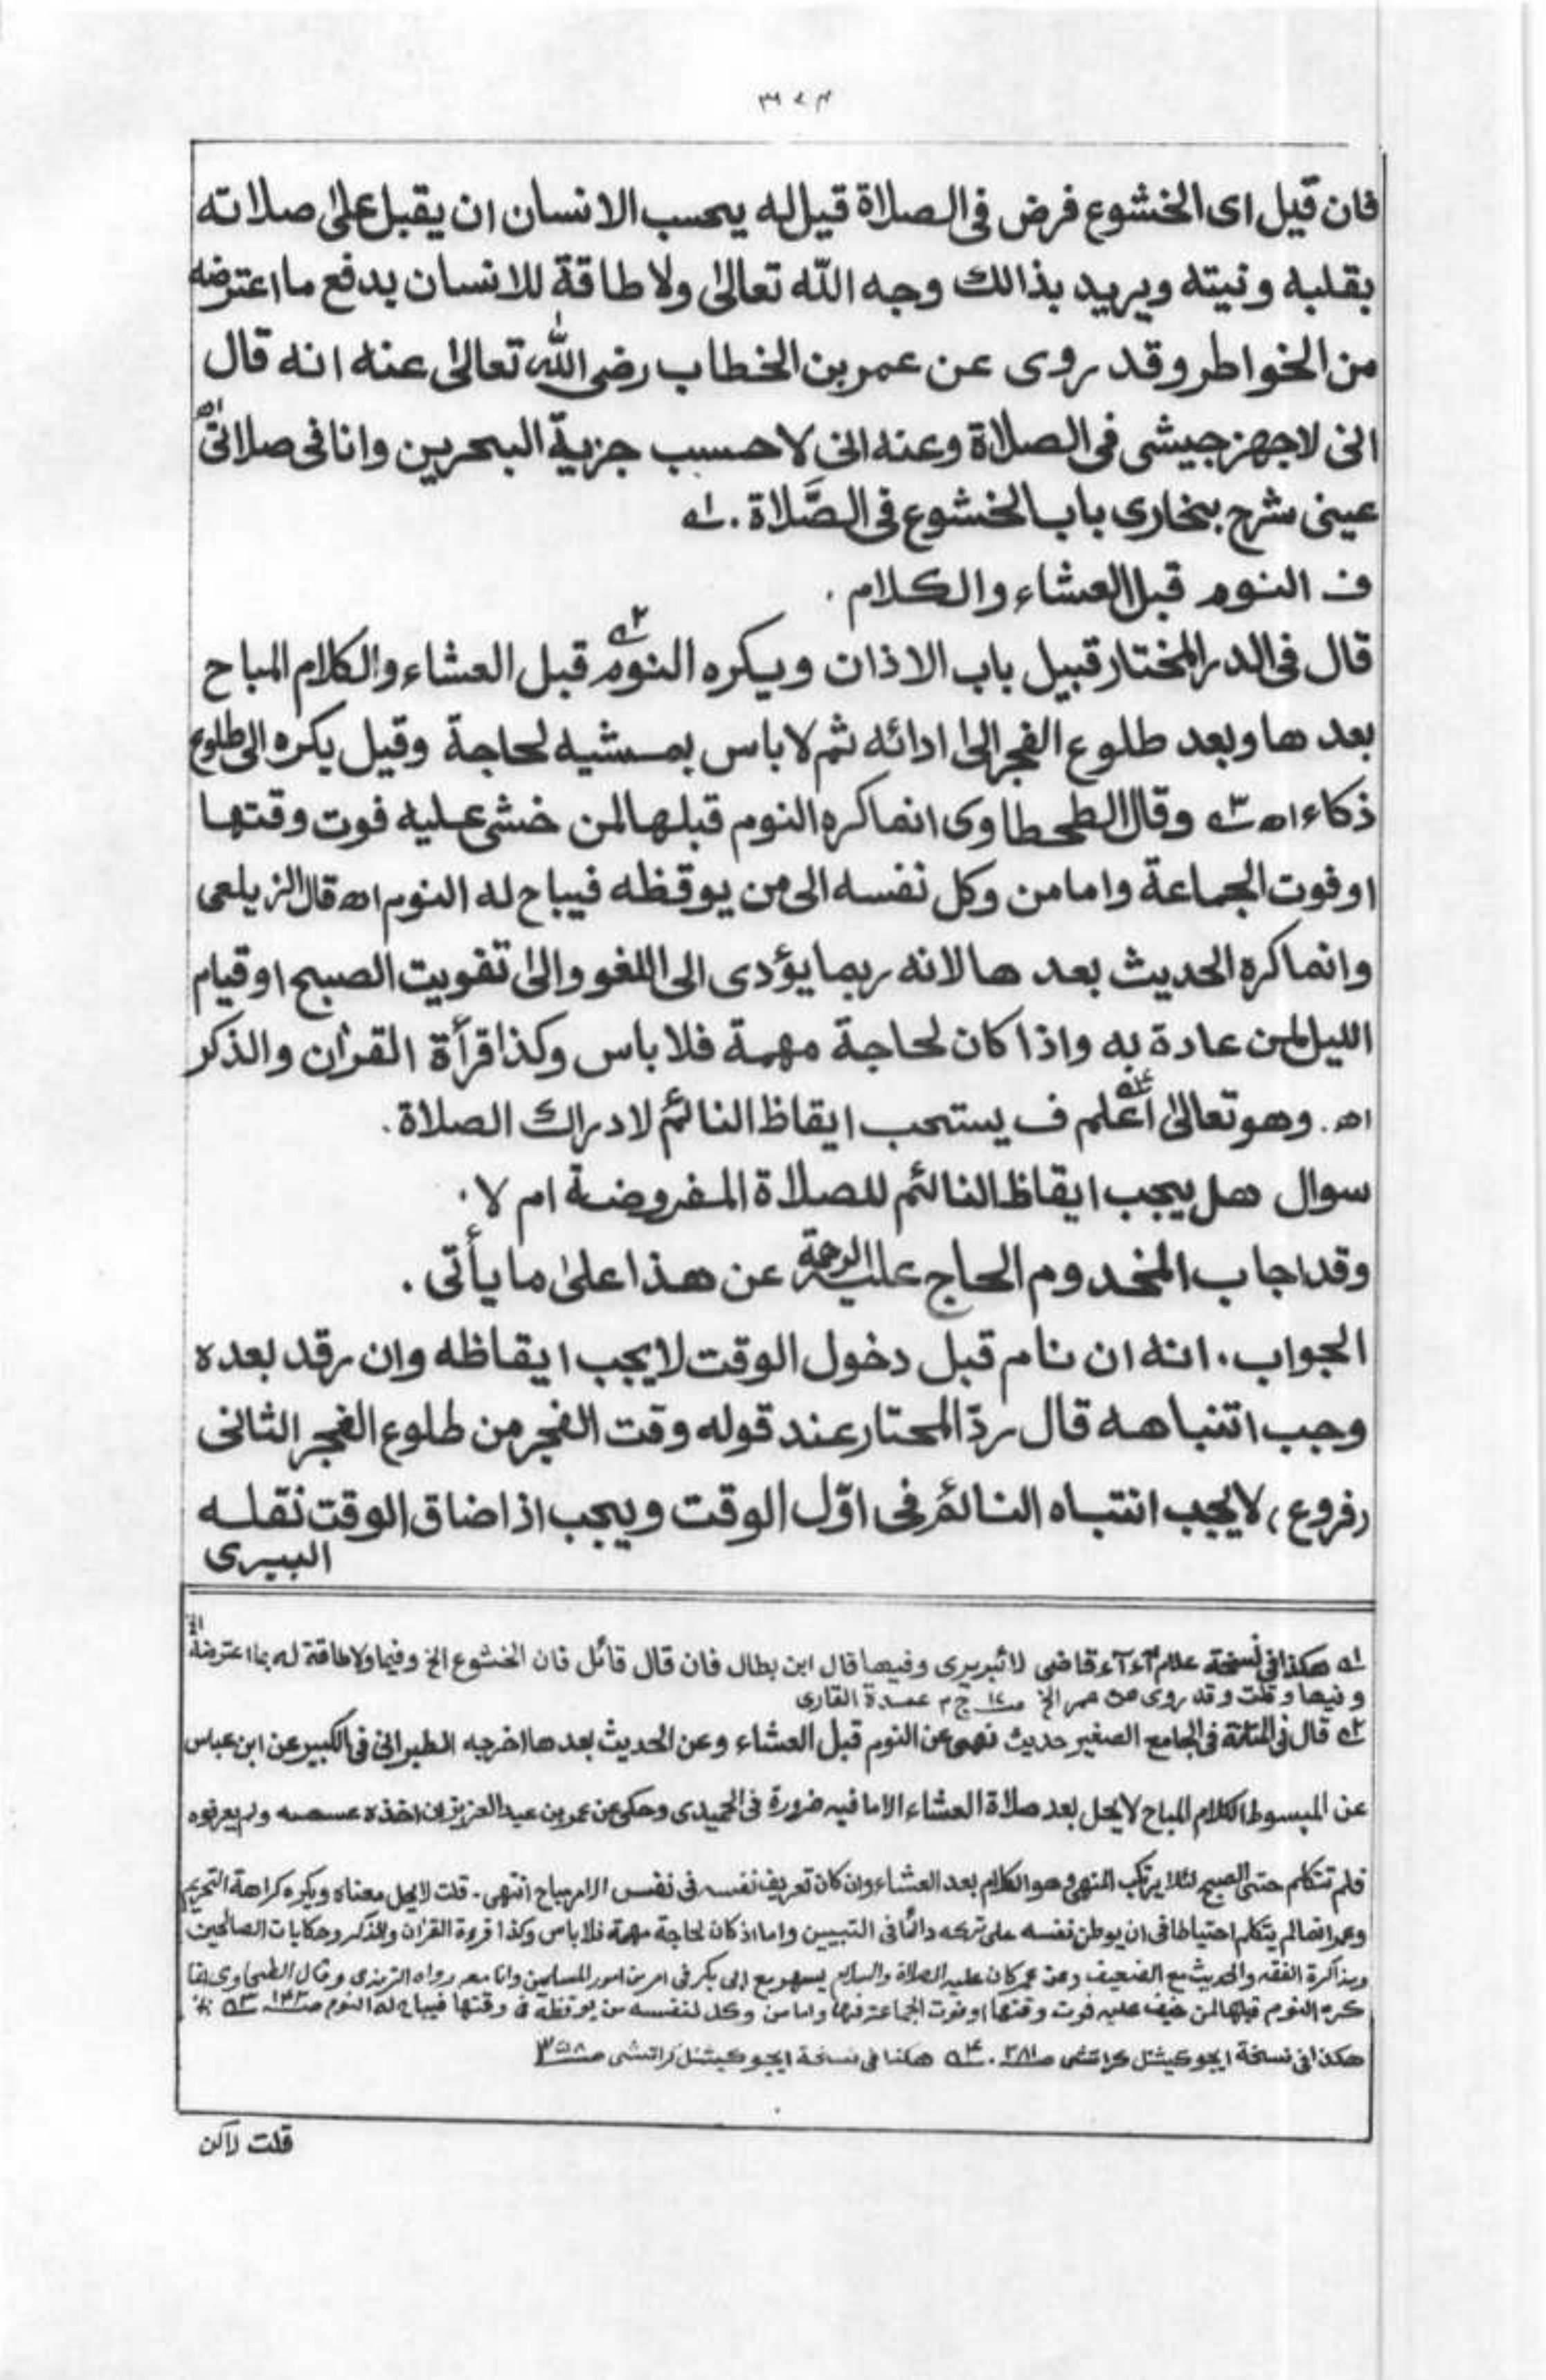 ٣٧٤
فان قيل اى الخشوع فرض فى الصلاة قيل له يحسب الانسان ان يقبل على صلاته
بقلبه ونيته ويريد بذالك وجه الله تعالىٰ ولا طاقة للانسان بدفع ما اعترضه
من الخواطر وقد روى عن عمر بن الخطاب رضى الله تعالىٰ عنه انه قال
انى لاجهز جيشى فى الصلاة وعنه انى لاحسب جزية البحرين وانا فى صلاتى اه
عينى شرح بخارى باب الخشوع فى الصَّلاة. ١ه
ف النوم قبل العشاء والكلام.
قال فى الدر المختار قبيل باب الاذان ويكره النوم ٢ه قبل العشاء والكلام المباح
بعد ها وبعد طلوع الفجر الىٰ ادائه ثم لا باس بمشيه لحاجة وقيل يكره الى طلوع
ذكاء اه ٣ه وقال الطحطاوى انما كره النوم قبلها لمن خشى عليه فوت وقتها
او فوت الجماعة واما من وكل نفسه الى من يوقظه فيباح له النوم اه قال الزيلعى
وانما كره الحديث بعد ها لانه ربما يؤدى الى اللغو والىٰ تفويت الصبح او قيام
الليل لمن عادة به واذا كان لحاجة مهمة فلا باس وكذا قرأة القرٰان والذكر
اه. وهو تعالىٰ اعلم ٤ه ف يستحب ايقاظ النائم لادراك الصلاة.
سوال هل يجب ايقاظ النائم للصلاة المفروضة ام لا.
وقد اجاب المخدوم الحاج عليه الرحمة عن هذا علىٰ ما يأتى.
الجواب. انه ان نام قبل دخول الوقت لا يجب ايقاظه وان رقد بعده
وجب اتنباهه قال ردّ المحتار عند قوله وقت الفجر من طلوع الفجر الثانى
(فروع) لا يجب انتباه النائم فى اوّل الوقت ويجب اذا ضاق الوقت نقله
البيرى
١ه هكذا فى نسخة قاضى لائبريرى وفيها قال ابن بطال فان قال قائل فان الخشوع الخ وفيها ولا طاقة له بما اعترضه الخ
وفيها وقلت وقد روى عن عمر الخ ج عمدة القارى
٢ه قال فى فى الجامع الصغير حديث نهى عن النوم قبل العشاء وعن الحديث بعدها اخرجه الطبرانى فى الكبير عن ابن عباس
عن المبسوط الكلام المباح لا يحل بعد صلاة العشاء الا ما فيه ضرورة فى الحميدى وحكى عن عمر بن عبد العزيز ان اخذه ولم يعرفوه
فلم تتكلم حتى الصبح لئلا يرتكب المنهى وهو الكلام بعد العشاء وان كان تعريف نفسه فى نفس الامر مباح انتهى. قلت لا يحل معناه ويكره كراهة التحريم
لم يتكلم احتياطا فى ان يوطن نفسه على تركه دائما فى التبيين واما اذ كان لحاجة مهمة فلا باس وكذا قرءة القرٰان والذكر وحكايات الصالحين
ومذاكرة الفقه والحديث مع الضعيف وعن عمر كان عليه الصلاة والسلام يسهر مع ابى بكر فى امر من امور المسلمين وانا معه رواه الترمذى وقال الطحاوى انما
كره النوم قبلها لمن خيف عليه فوت وقتها او فوت الجماعة فيها واما من وكل لنفسه من يوقظه فى وقتها فيباح له النوم
هكذا فى نسخة ايجو كيشنل كراتشى ص ٢٨١. ٤ه هكذا فى نسخة ايجو كيشنل كراتشى
قلت لاكن